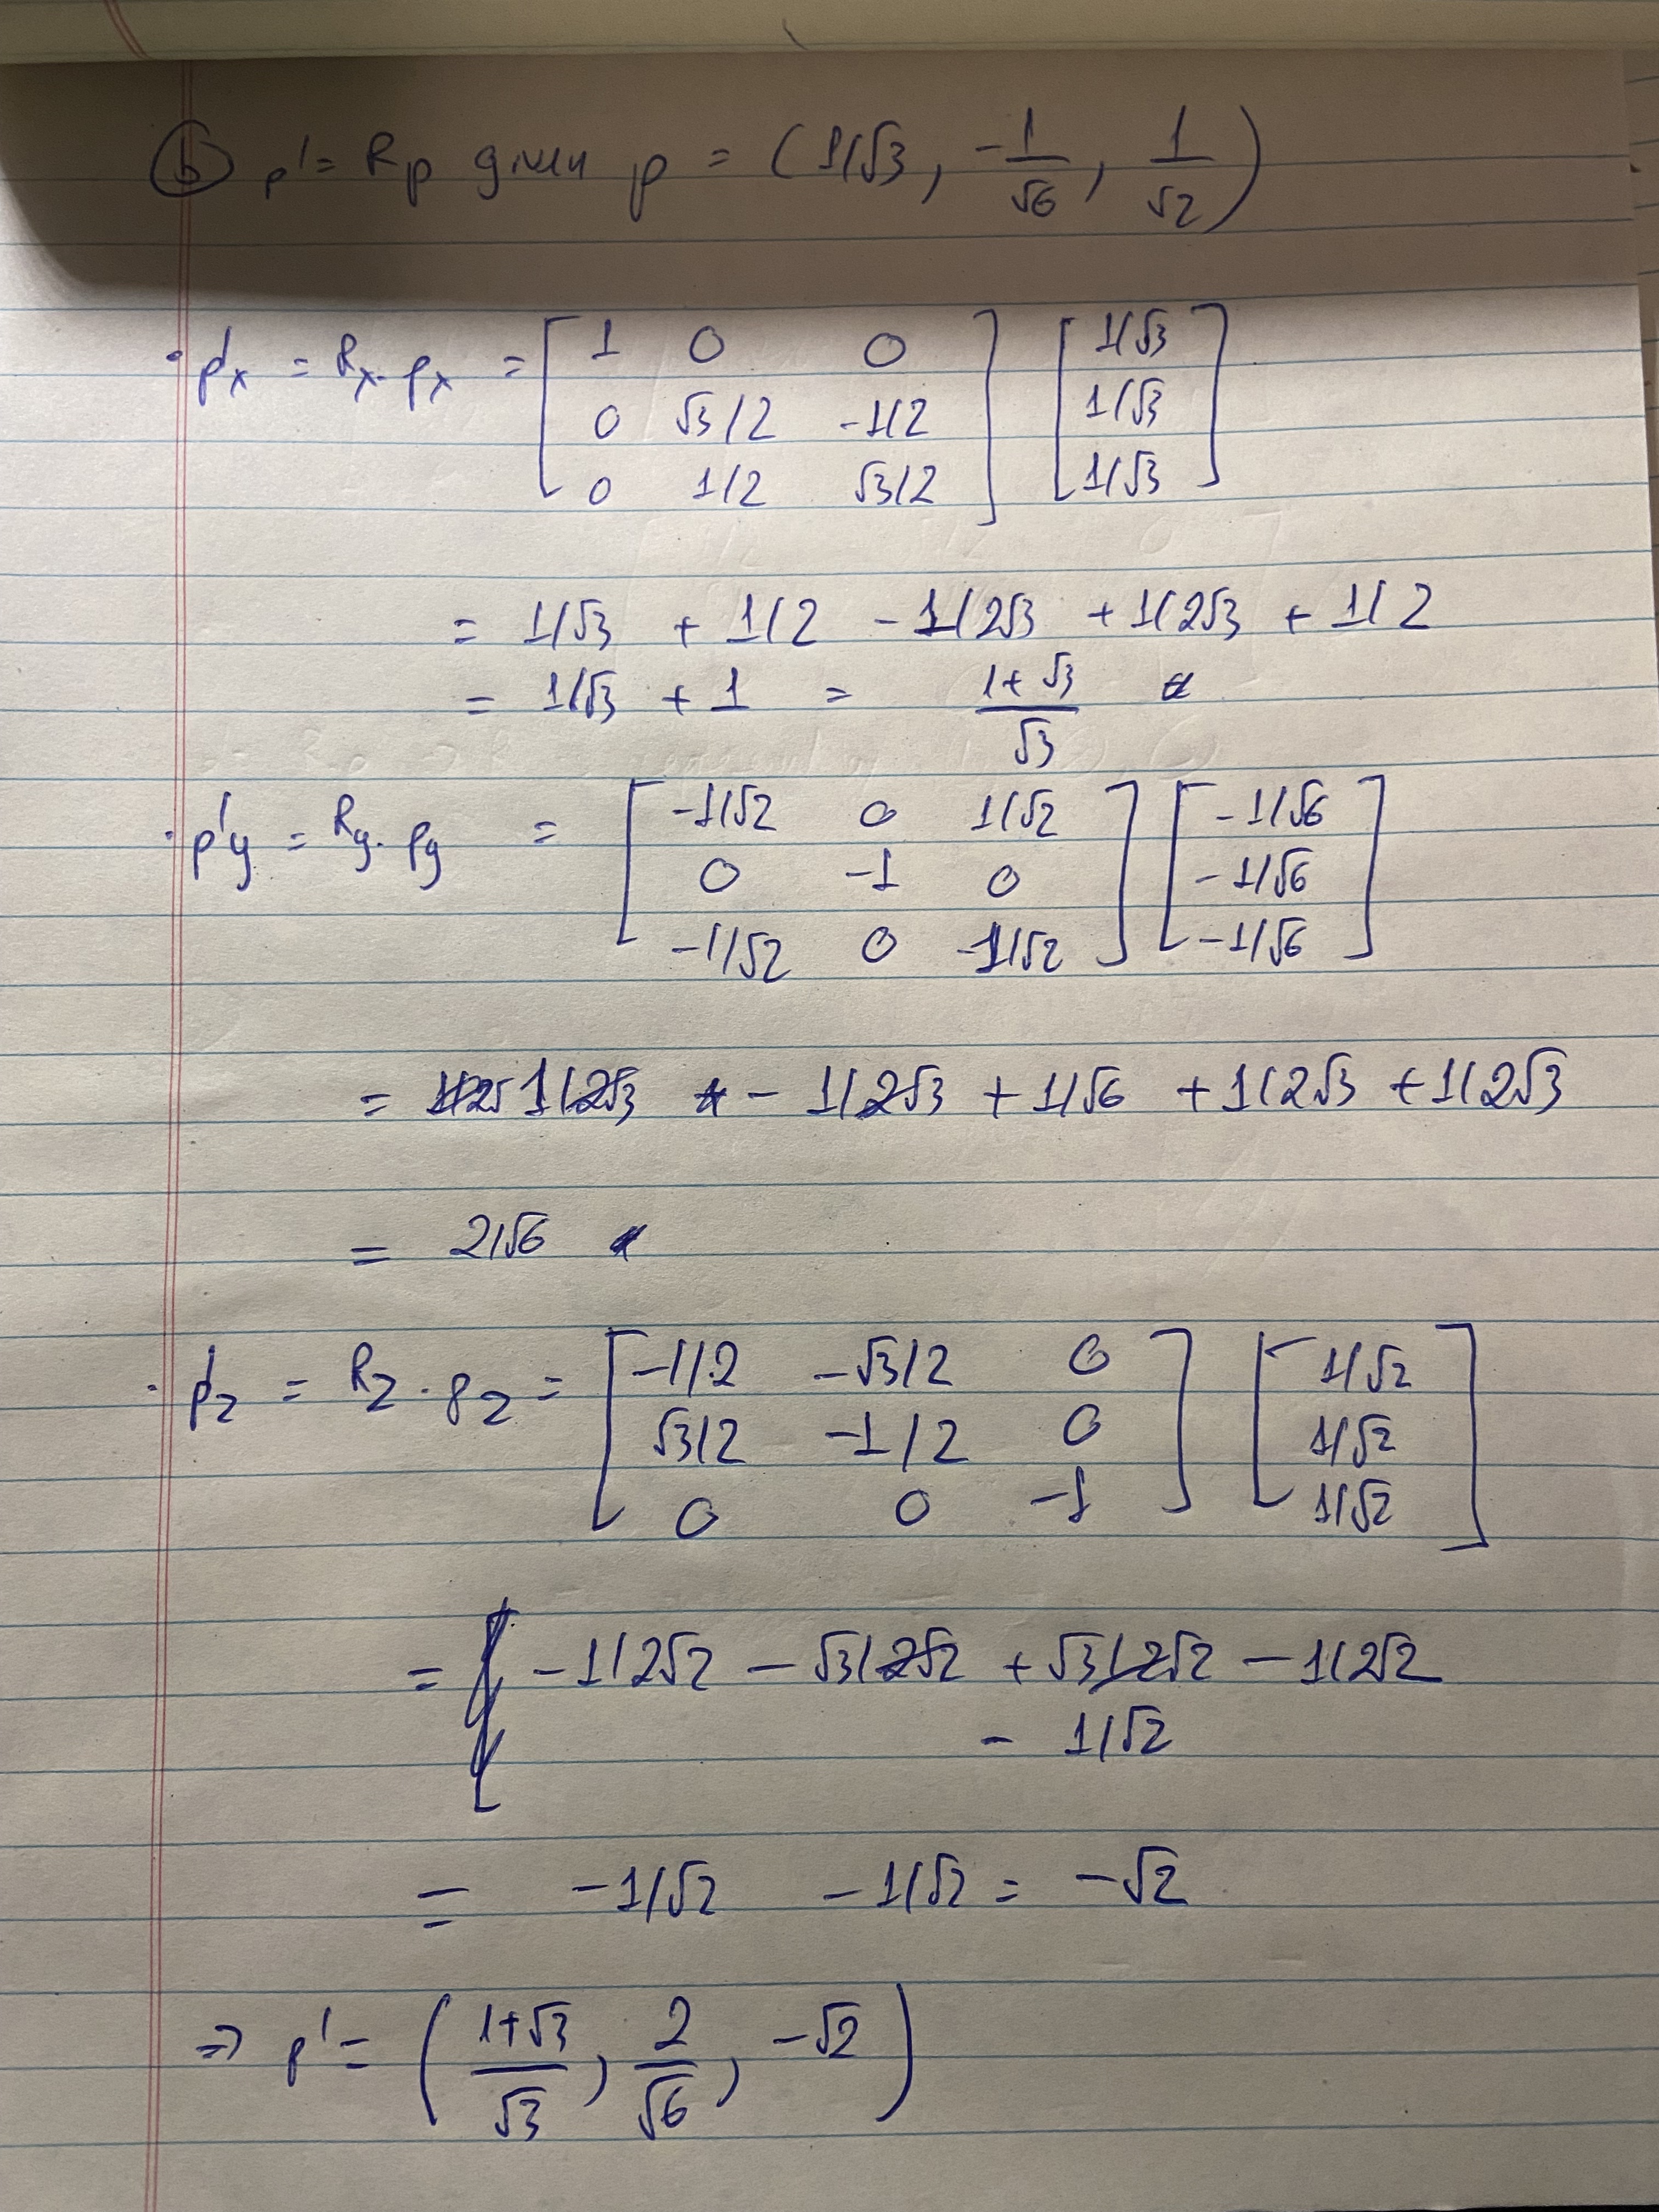 ⓑ p' = Rp given p = (1/√3, -1/√6, 1/√2)
· p'x = Rx · px = [1 0 0; 0 √3/2 -1/2; 0 1/2 √3/2] [1/√3; 1/√3; 1/√3]
= 1/√3 + 1/2 - 1/2√3 + 1/2√3 + 1/2
= 1/√3 + 1 = (1+√3)/√3
· p'y = Ry · py = [-1/√2 0 1/√2; 0 -1 0; -1/√2 0 -1/√2] [-1/√6; -1/√6; -1/√6]
= 1/2√3 - 1/2√3 + 1/√6 + 1/2√3 + 1/2√3
= 2/√6
· p'z = Rz · pz = [-1/2 -√3/2 0; √3/2 -1/2 0; 0 0 -1] [1/√2; 1/√2; 1/√2]
= -1/2√2 - √3/2√2 + √3/2√2 - 1/2√2
- 1/√2
= -1/√2 - 1/√2 = -√2
⇒ p' = ((1+√3)/√3, 2/√6, -√2)